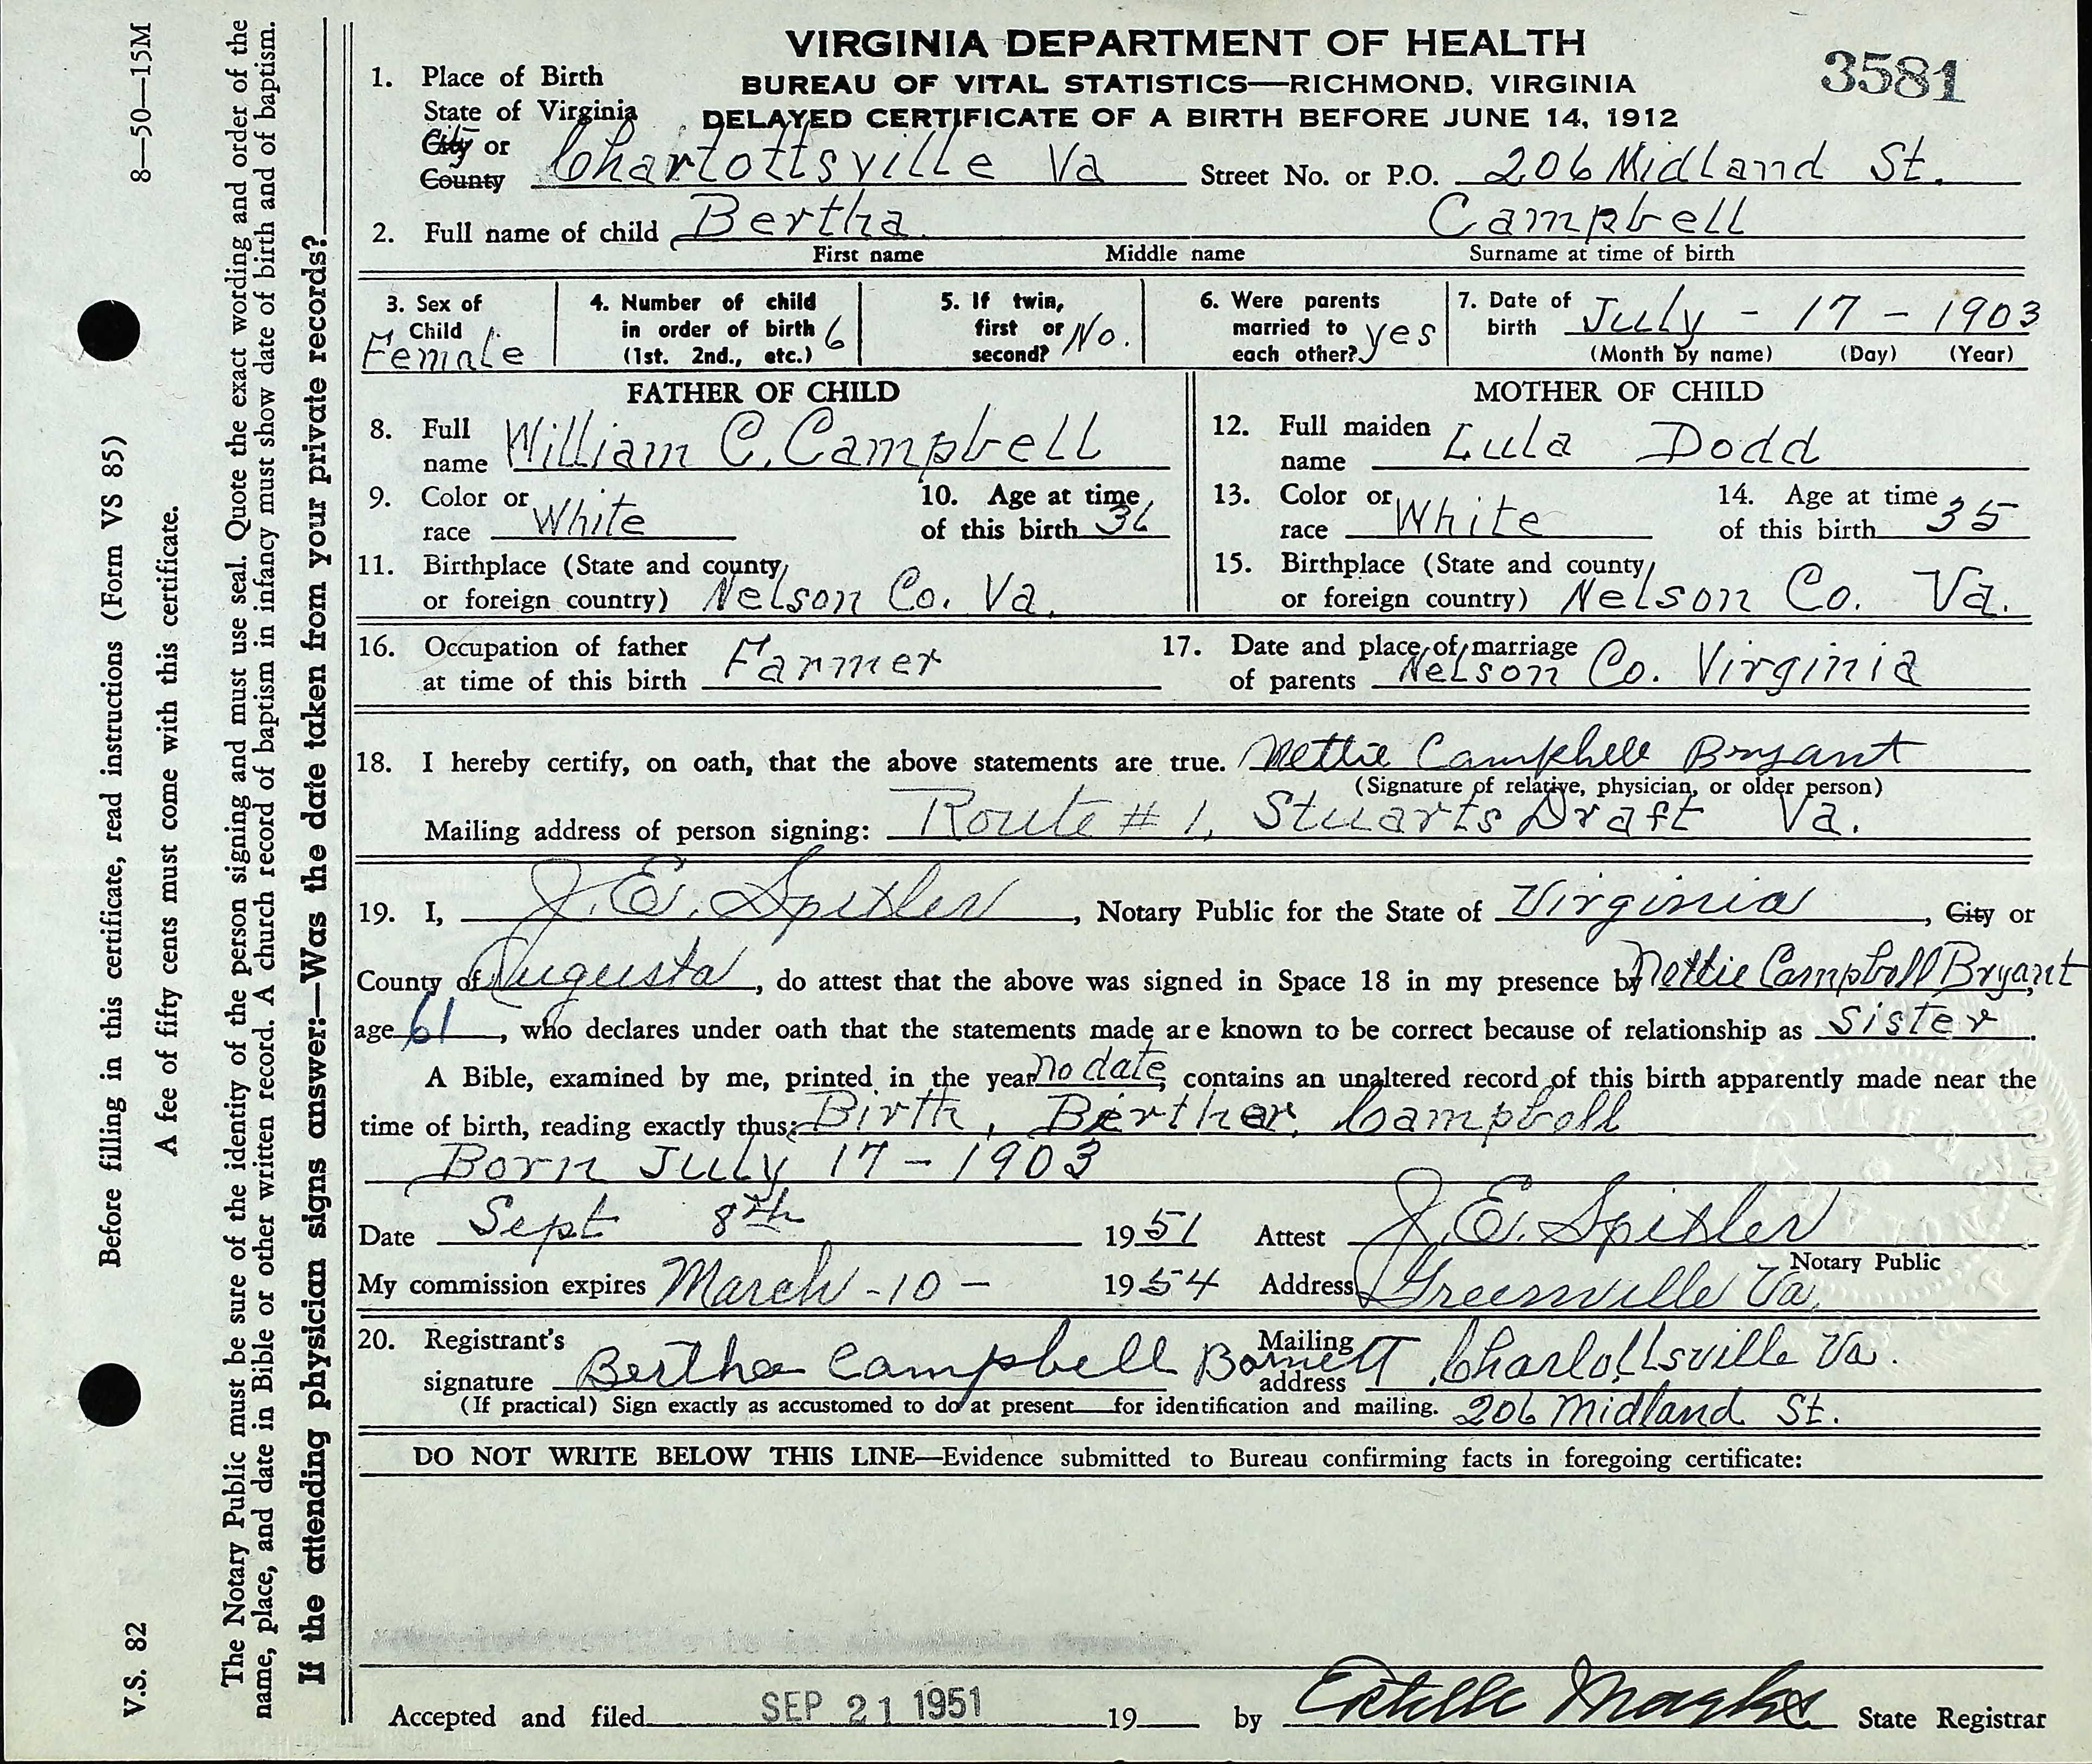 8—50—15M
Before filling in this certificate, read instructions (Form VS 85)
A fee of fifty cents must come with this certificate.
V.S. 82
The Notary Public must be sure of the identity of the person signing and must use seal. Quote the exact wording and order of the
name, place, and date in Bible or other written record. A church record of baptism in infancy must show date of birth and of baptism.
If the attending physician signs answer:—Was the date taken from your private records?
VIRGINIA DEPARTMENT OF HEALTH
BUREAU OF VITAL STATISTICS—RICHMOND, VIRGINIA
DELAYED CERTIFICATE OF A BIRTH BEFORE JUNE 14, 1912
3581
1. Place of Birth
State of Virginia
City or
County Charlottsville Va Street No. or P.O. 206 Midland St.
2. Full name of child Bertha Campbell
First name Middle name Surname at time of birth
3. Sex of Child Female
4. Number of child in order of birth (1st. 2nd., etc.) 6
5. If twin, first or second? No.
6. Were parents married to each other? yes
7. Date of birth July - 17 - 1903
(Month by name) (Day) (Year)
FATHER OF CHILD MOTHER OF CHILD
8. Full name William C. Campbell
12. Full maiden name Lula Dodd
9. Color or race White 10. Age at time of this birth 36
13. Color or race White 14. Age at time of this birth 35
11. Birthplace (State and county or foreign country) Nelson Co. Va.
15. Birthplace (State and county or foreign country) Nelson Co. Va.
16. Occupation of father at time of this birth Farmer
17. Date and place of marriage of parents Nelson Co. Virginia
18. I hereby certify, on oath, that the above statements are true. Nettie Campbell Bryant
(Signature of relative, physician, or older person)
Mailing address of person signing: Route # 1, Stuarts Draft Va.
19. I, J. E. Spitler, Notary Public for the State of Virginia, City or
County of Augusta, do attest that the above was signed in Space 18 in my presence by Nettie Campbell Bryant
age 61, who declares under oath that the statements made are known to be correct because of relationship as Sister.
A Bible, examined by me, printed in the year no date, contains an unaltered record of this birth apparently made near the
time of birth, reading exactly thus: Birth, Berther Campbell
Born July 17 - 1903
Date Sept 8th 1951 Attest J. E. Spitler
Notary Public
My commission expires March - 10 - 1954 Address Greenville Va.
20. Registrant's signature Bertha Campbell Barnett Mailing address Charlottsville Va.
(If practical) Sign exactly as accustomed to do at present—for identification and mailing. 206 Midland St.
DO NOT WRITE BELOW THIS LINE—Evidence submitted to Bureau confirming facts in foregoing certificate:
Accepted and filed SEP 21 1951 19 by Estelle Marks State Registrar